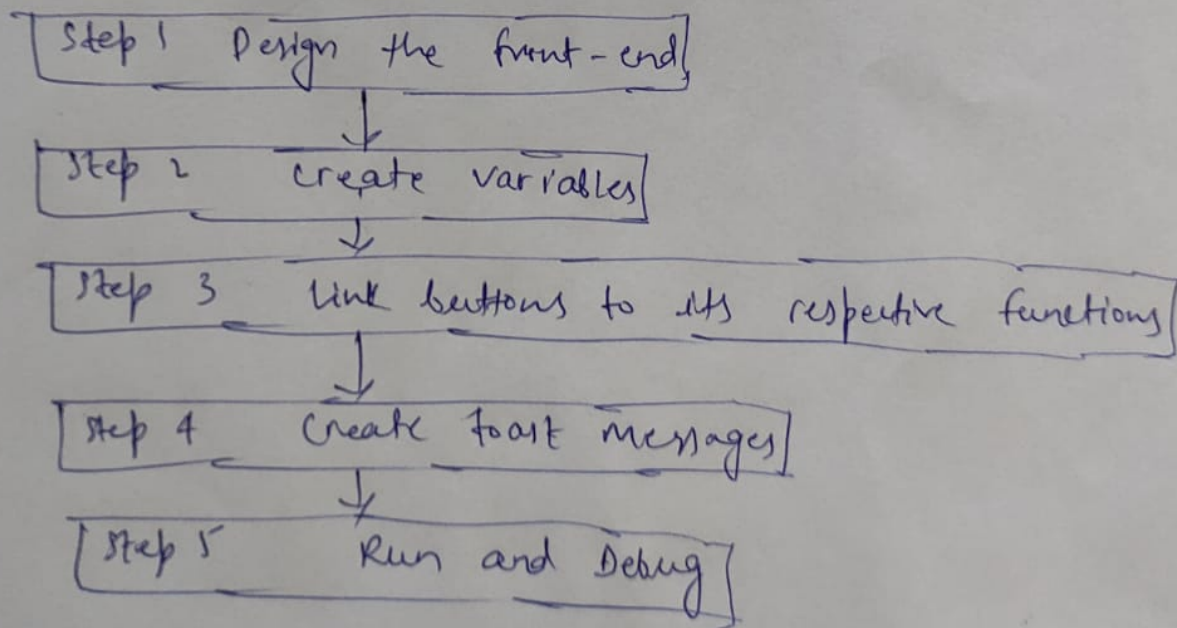 Step 1 Design the front-end
Step 2 Create variables
Step 3 Link buttons to its respective functions
Step 4 Create toast messages
Step 5 Run and Debug